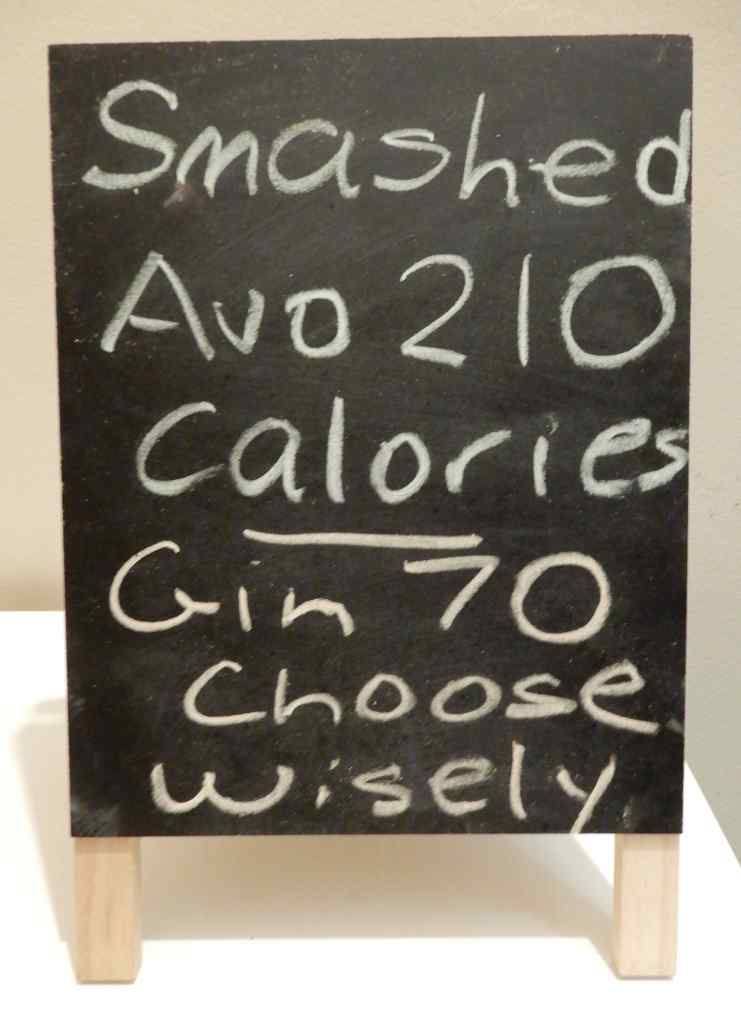 Smashed
Avo 210
Calories
Gin 70
Choose
wisely